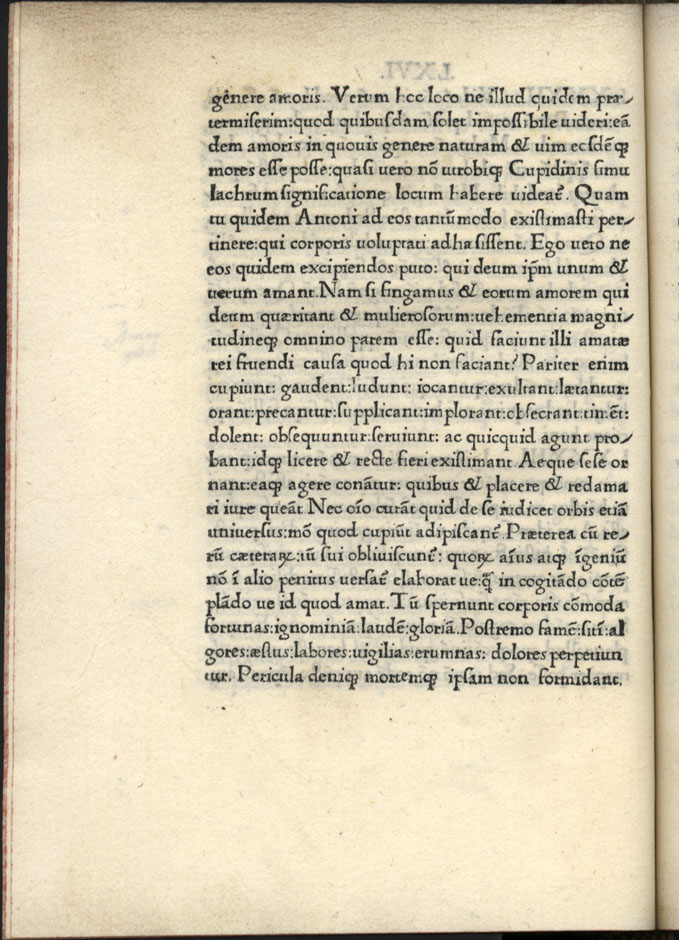 gẽnere amoris. Verum hoc loco ne illud quidem præ⸗
termiserim:quod quibusdam solet impossibile uideri:eã
dem amoris in quouis genere naturam & uim eosdẽqꝫ
mores esse posse:quasi uero nõ utrobiqꝫ Cupidinis simu
lachrum significatione locum habere uideat̃. Quam
tu quidem Antoni ad eos tantũmodo existimasti per⸗
tinere:qui corporis uoluptati adhæsissent. Ego uero ne
eos quidem excipiendos puto: qui deum ip̃m unum &
uerum amant.Nam si fingamus & eorum amorem qui
deum quæritant & mulierosorum:uehementia magni⸗
tudineqꝫ omnino parem esse: quid faciunt illi amatæ
rei fruendi causa quod hi non faciant? Pariter enim
cupiunt: gaudent:ludunt: iocantur:exultant:lætantur:
orant:precantur:supplicant:implorant:obsecrant:timẽt:
dolent: obsequuntur:seruiunt: ac quicquid agunt pro⸗
bant:idqꝫ licere & recte fieri existimant. Aeque sese or
nant:eaqꝫ agere conãtur: quibus & placere & redama
ri iure queãt. Nec oĩo curãt quid de se iudicet orbis etiã
uniuersus:mõ quod cupiũt adipiscant̃. Præterea cũ re⸗
rũ cæteraꝝ:tũ sui obliuiscunt̃: quoꝝ aĩus atqꝫ ĩgeniũ
nõ ĩ alio penitus uersat̃ elaborat ue:q̃ꝫ in cogitãdo cõtẽ
plãdo ue id quod amat. Tũ spernunt corporis cõmoda
fortunas:ignominiã:laudẽ:gloriã.Postremo famẽ:sitĩ:al
gores:æstus:labores:uigilias:erumnas: dolores perpetiun
tur. Pericula deniqꝫ mortemqꝫ ipsam non formidant.